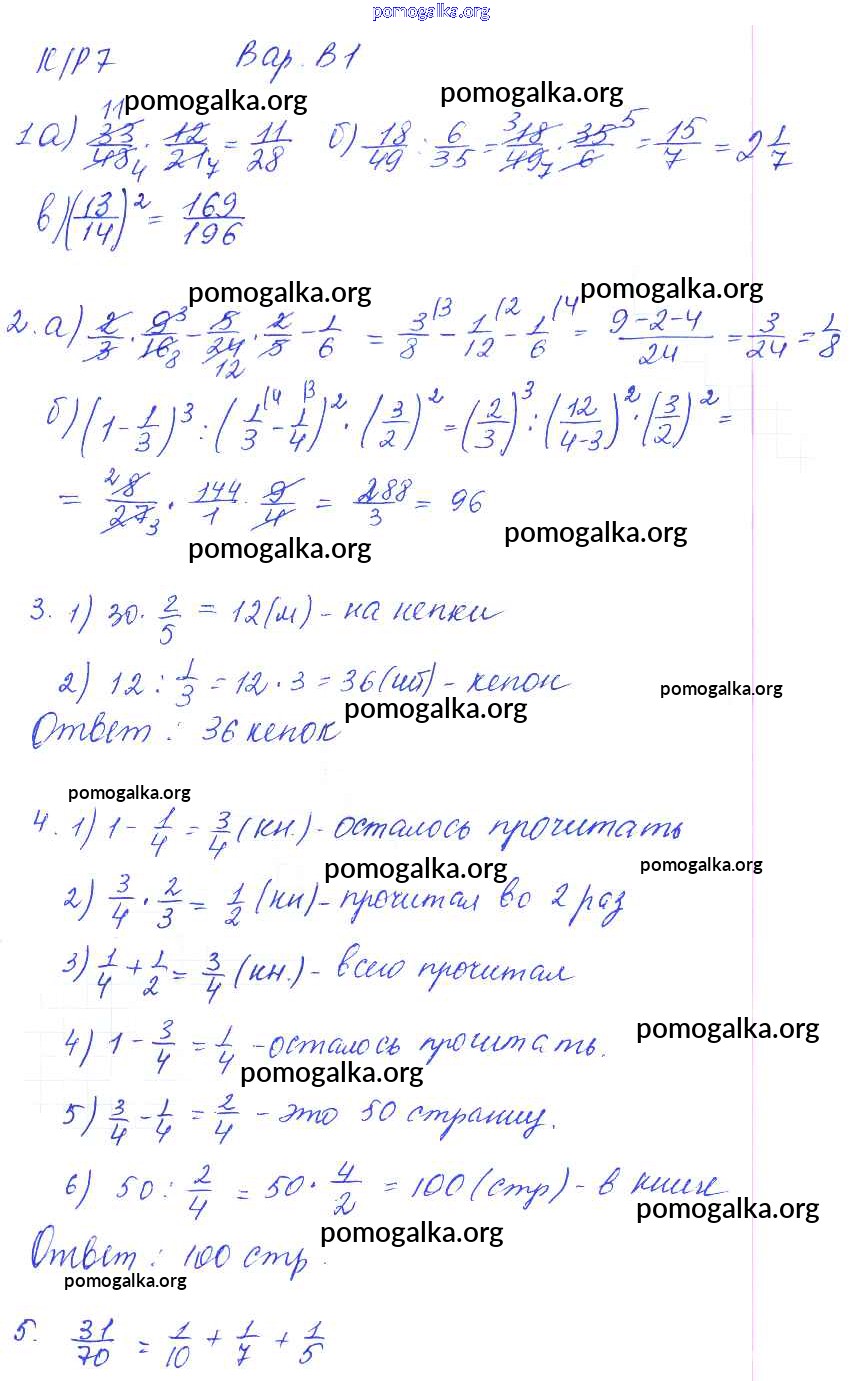 pomogalka.org
К/Р7 Вар. В1
pomogalka.org pomogalka.org
1а) 33/48 · 12/21 = 11/28 б) 18/49 : 6/35 = 18/49 · 35/6 = 15/7 = 2 1/7
в) (13/14)² = 169/196
pomogalka.org pomogalka.org
2. а) 2/3 · 9/16 - 5/24 · 2/5 - 1/6 = 3/8 - 1/12 - 1/6 = (9-2-4)/24 = 3/24 = 1/8
б) (1 - 1/3)³ : (1/3 - 1/4)² · (3/2)² = (2/3)³ : (12/(4-3))² · (3/2)² =
= 8/27 · 144/1 · 9/4 = 288/3 = 96
pomogalka.org pomogalka.org
3. 1) 30 · 2/5 = 12 (м) - на кепки
2) 12 : 1/3 = 12 · 3 = 36 (шт) - кепок
pomogalka.org pomogalka.org
Ответ: 36 кепок
pomogalka.org
4. 1) 1 - 1/4 = 3/4 (кн.) - осталось прочитать
pomogalka.org pomogalka.org
2) 3/4 · 2/3 = 1/2 (кн) - прочитал во 2 раз
3) 1/4 + 1/2 = 3/4 (кн.) - всего прочитал
pomogalka.org
4) 1 - 3/4 = 1/4 - осталось прочитать.
pomogalka.org
5) 3/4 - 1/4 = 2/4 - это 50 страниц.
6) 50 : 2/4 = 50 · 4/2 = 100 (стр) - в книге
pomogalka.org
pomogalka.org
Ответ: 100 стр.
pomogalka.org
5. 31/70 = 1/10 + 1/7 + 1/5